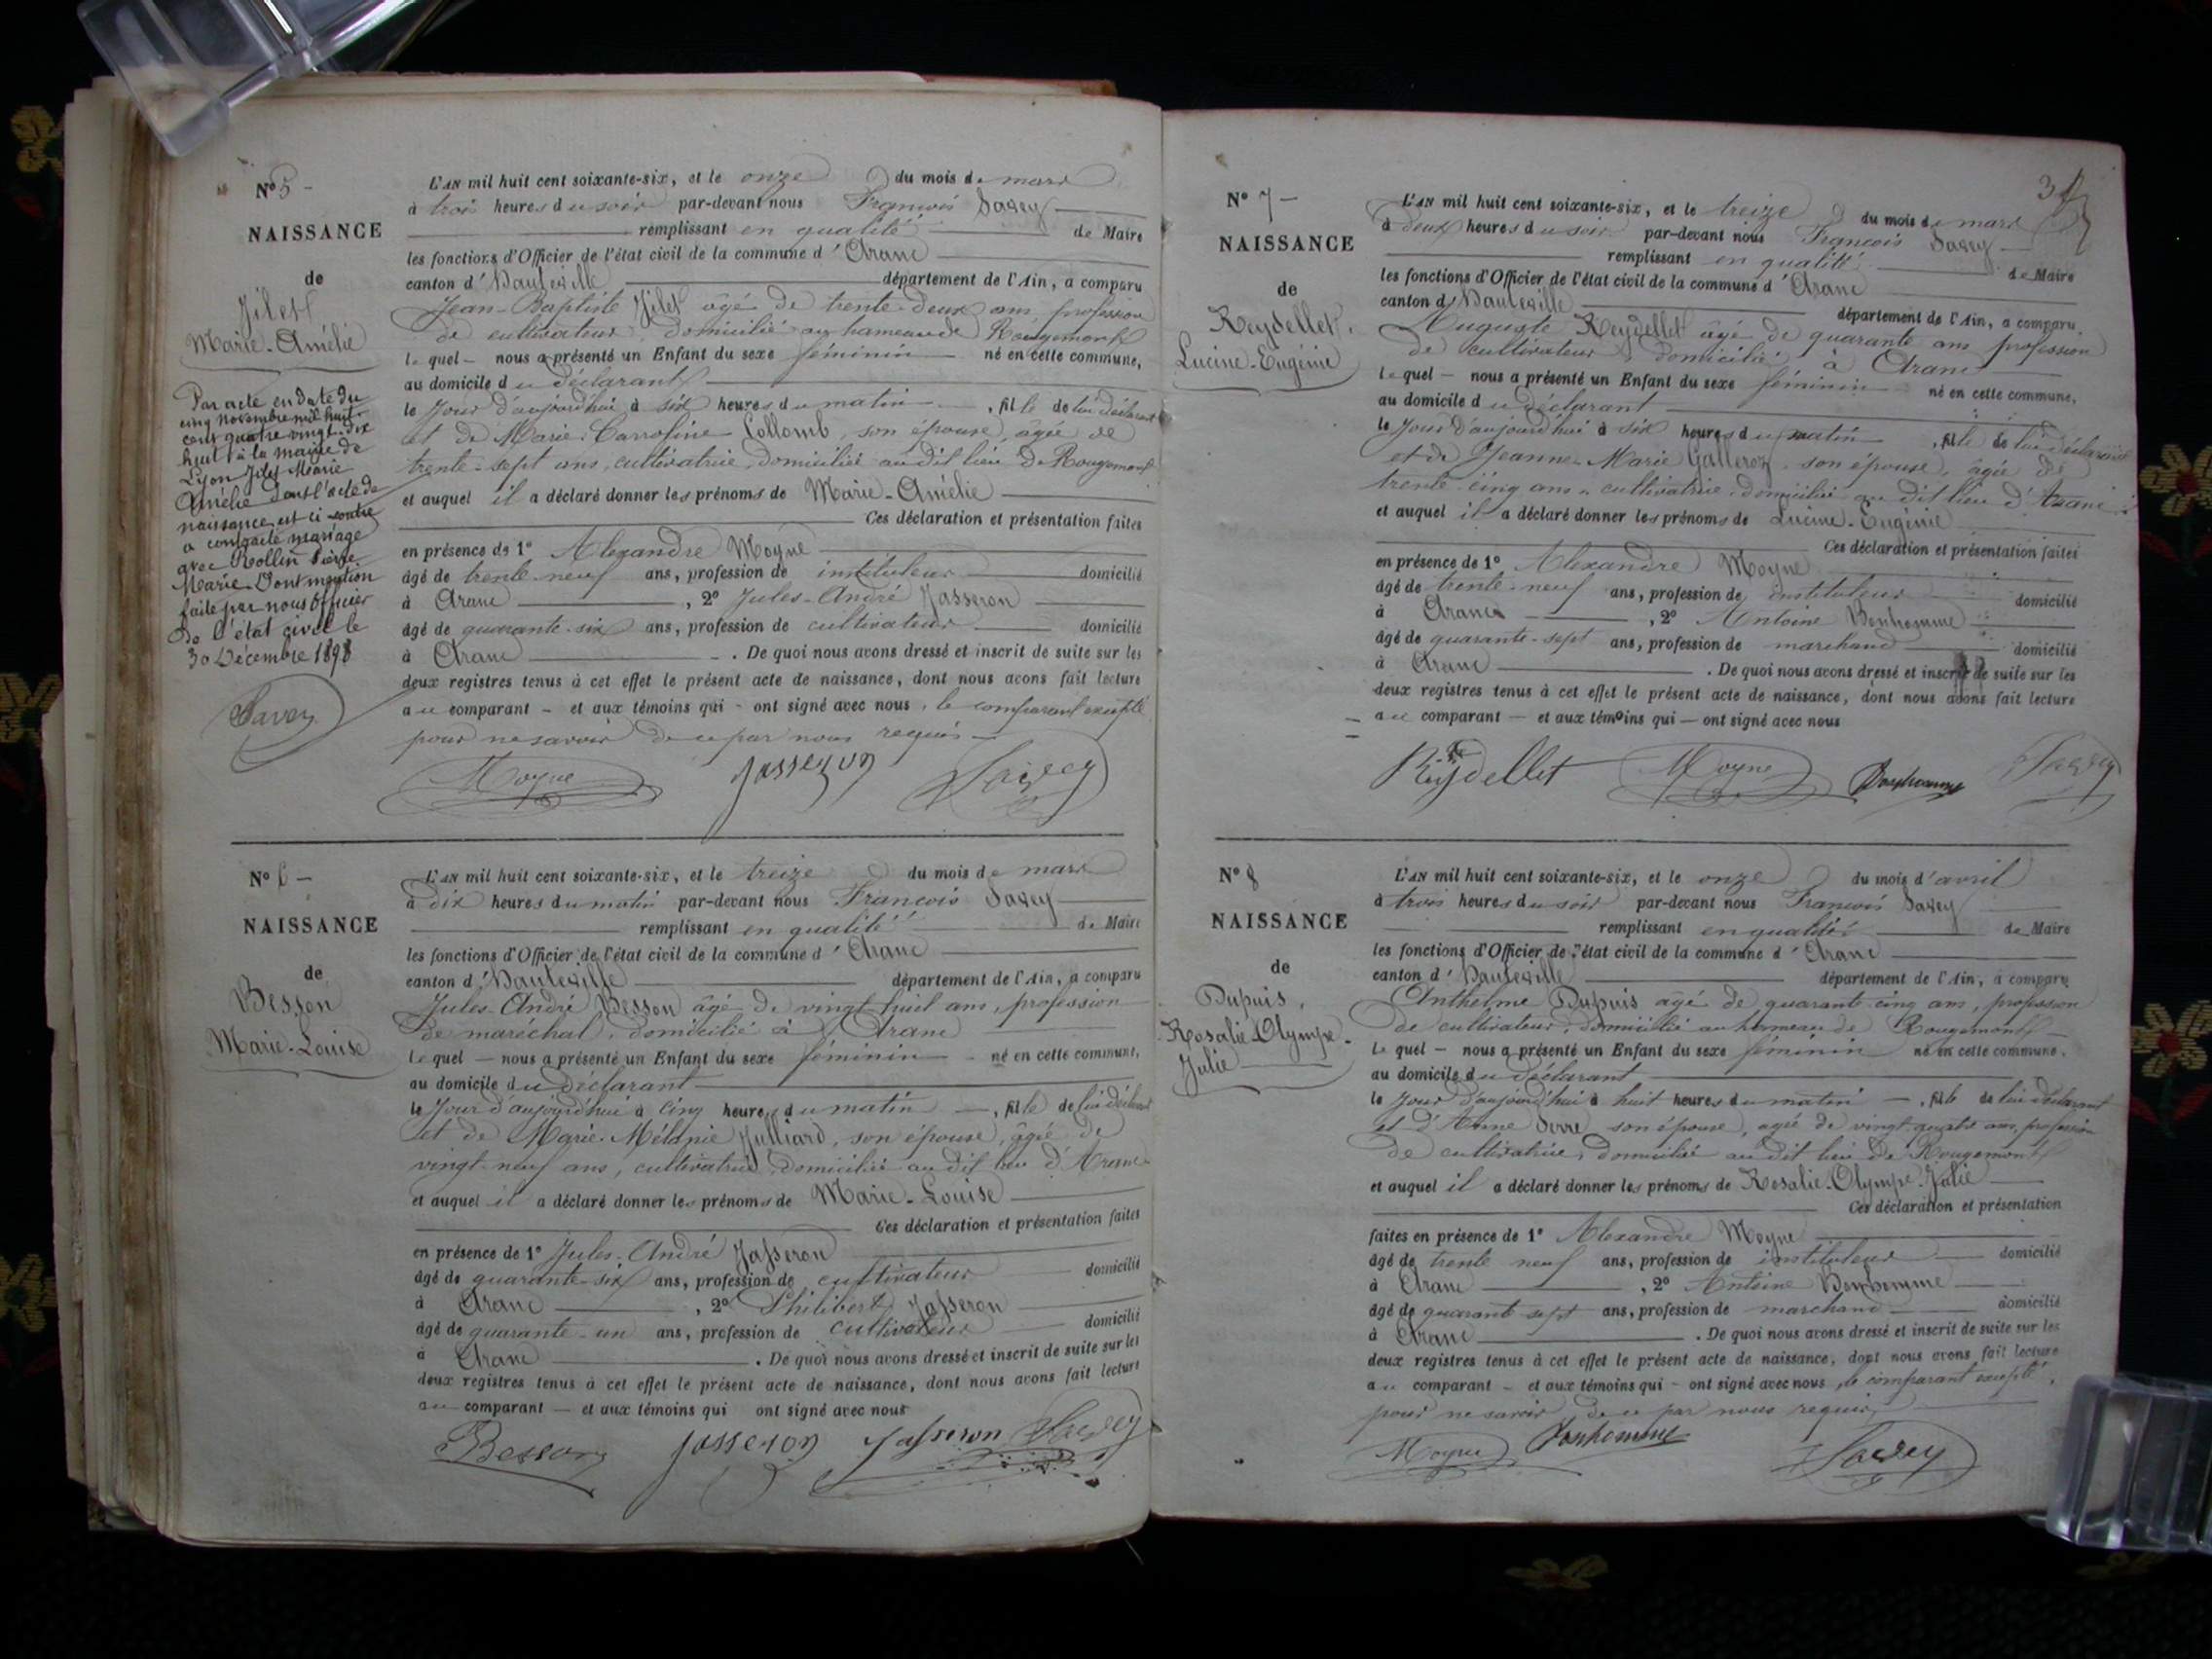 N° 5 -
NAISSANCE
de
Jilet
Marie-Amélie
Par acte en date du
cinq Novembre mil huit
cent quatre vingt-dix
huit à la mairie de
Lyon Jilet Marie
Amélie dont l'acte de
naissance est ci contre
a contracté mariage
avec Rollin Pierre
Marie Dont mention
faite par nous Officier
De l'état civil le
30 Décembre 1898
Savey
L'AN mil huit cent soixante-six, et le onze du mois de mars
à trois heures du soir par-devant nous François Savey
remplissant en qualité de Maire
les fonctions d'Officier de l'état civil de la commune d'Aranc
canton d'Hauteville département de l'Ain, a comparu
Jean-Baptiste Jilet âgé de trente-deux ans, profession
de cultivateur, domicilié au hameau de Rougemont
lequel - nous a présenté un Enfant du sexe féminin né en cette commune,
au domicile du déclarant
le Jour d'aujourd'hui à six heures du matin , fille de lui déclarant
et de Marie-Carroline Collomb, son épouse, âgée de
trente-sept ans, cultivatrice, domiciliée au dit lieu de Rougemont
et auquel il a déclaré donner les prénoms de Marie-Amélie
Ces déclaration et présentation faites
en présence de 1° Alexandre Moyne
âgé de trente-neuf ans, profession de instituteur domicilié
à Aranc , 2° Jules-André Jasseron
âgé de quarante-six ans, profession de cultivateur domicilié
à Aranc . De quoi nous avons dressé et inscrit de suite sur les
deux registres tenus à cet effet le présent acte de naissance, dont nous avons fait lecture
au comparant - et aux témoins qui - ont signé avec nous, le comparant excepté
pour ne savoir de ce par nous requis
Moyne Jasseron Savey
N° 6 -
NAISSANCE
de
Besson
Marie-Louise
L'AN mil huit cent soixante-six, et le treize du mois de mars
à dix heures du matin par-devant nous François Savey
remplissant en qualité de Maire
les fonctions d'Officier de l'état civil de la commune d'Aranc
canton d'Hauteville département de l'Ain, a comparu
Jules-André Besson âgé de vingt-huit ans, profession
de maréchal, domicilié à Aranc
lequel - nous a présenté un Enfant du sexe féminin - né en cette commune,
au domicile du déclarant
le Jour d'aujourd'hui à cinq heures du matin - , fille de lui déclarant
et de Marie-Mélanie Julliard, son épouse, âgée de
vingt-neuf ans, cultivatrice, domiciliée au dit lieu d'Aranc
et auquel il a déclaré donner les prénoms de Marie-Louise
Ces déclaration et présentation faites
en présence de 1° Jules-André Jasseron
âgé de quarante-six ans, profession de cultivateur domicilié
à Aranc , 2° Philibert Jasseron
âgé de quarante-un ans, profession de cultivateur domicilié
à Aranc . De quoi nous avons dressé et inscrit de suite sur les
deux registres tenus à cet effet le présent acte de naissance, dont nous avons fait lecture
au comparant - et aux témoins qui ont signé avec nous
Besson Jasseron Jasseron Savey
N° 7 -
NAISSANCE
de
Reydellet,
Lucine-Eugénie
L'AN mil huit cent soixante-six, et le treize du mois de mars
à deux heures du soir par-devant nous François Savey
remplissant en qualité de Maire
les fonctions d'Officier de l'état civil de la commune d'Aranc
canton d'Hauteville département de l'Ain, a comparu
Auguste Reydellet âgé de quarante ans profession
de cultivateur, domicilié à Aranc
lequel - nous a présenté un Enfant du sexe féminin né en cette commune,
au domicile du déclarant
le Jour d'aujourd'hui à six heures du matin , fille de lui déclarant
et de Jeanne-Marie Galleroz, son épouse, âgée de
trente-cinq ans, cultivatrice, domiciliée au dit lieu d'Aranc
et auquel il a déclaré donner les prénoms de Lucine-Eugénie
Ces déclaration et présentation faites
en présence de 1° Alexandre Moyne
âgé de trente-neuf ans, profession de instituteur domicilié
à Aranc , 2° Antoine Bonhomme
âgé de quarante-sept ans, profession de marchand domicilié
à Aranc . De quoi nous avons dressé et inscrit de suite sur les
deux registres tenus à cet effet le présent acte de naissance, dont nous avons fait lecture
au comparant - et aux témoins qui - ont signé avec nous
Reydellet Moyne Bonhomme Savey
N° 8
NAISSANCE
de
Dupuis,
Rosalie-Olympe-
Julie
L'AN mil huit cent soixante-six, et le onze du mois d'avril
à trois heures du soir par-devant nous François Savey
remplissant en qualité de Maire
les fonctions d'Officier de l'état civil de la commune d'Aranc
canton d'Hauteville département de l'Ain, a comparu
Anthelme Dupuis âgé de quarante-cinq ans, profession
de cultivateur, domicilié au hameau de Rougemont
lequel - nous a présenté un Enfant du sexe féminin né en cette commune,
au domicile du déclarant
le Jour d'aujourd'hui à huit heures du matin - , fille de lui déclarant
et d'Anne Serre son épouse, âgée de vingt-quatre ans, profession
de cultivatrice, domiciliée au dit lieu de Rougemont
et auquel il a déclaré donner les prénoms de Rosalie-Olympe-Julie
Ces déclaration et présentation
faites en présence de 1° Alexandre Moyne
âgé de trente neuf ans, profession de instituteur domicilié
à Aranc , 2° Antoine Bonhomme
âgé de quarante-sept ans, profession de marchand domicilié
à Aranc . De quoi nous avons dressé et inscrit de suite sur les
deux registres tenus à cet effet le présent acte de naissance, dont nous avons fait lecture
au comparant - et aux témoins qui - ont signé avec nous, le comparant excepté,
pour ne savoir de ce par nous requis,
Moyne Bonhomme Savey